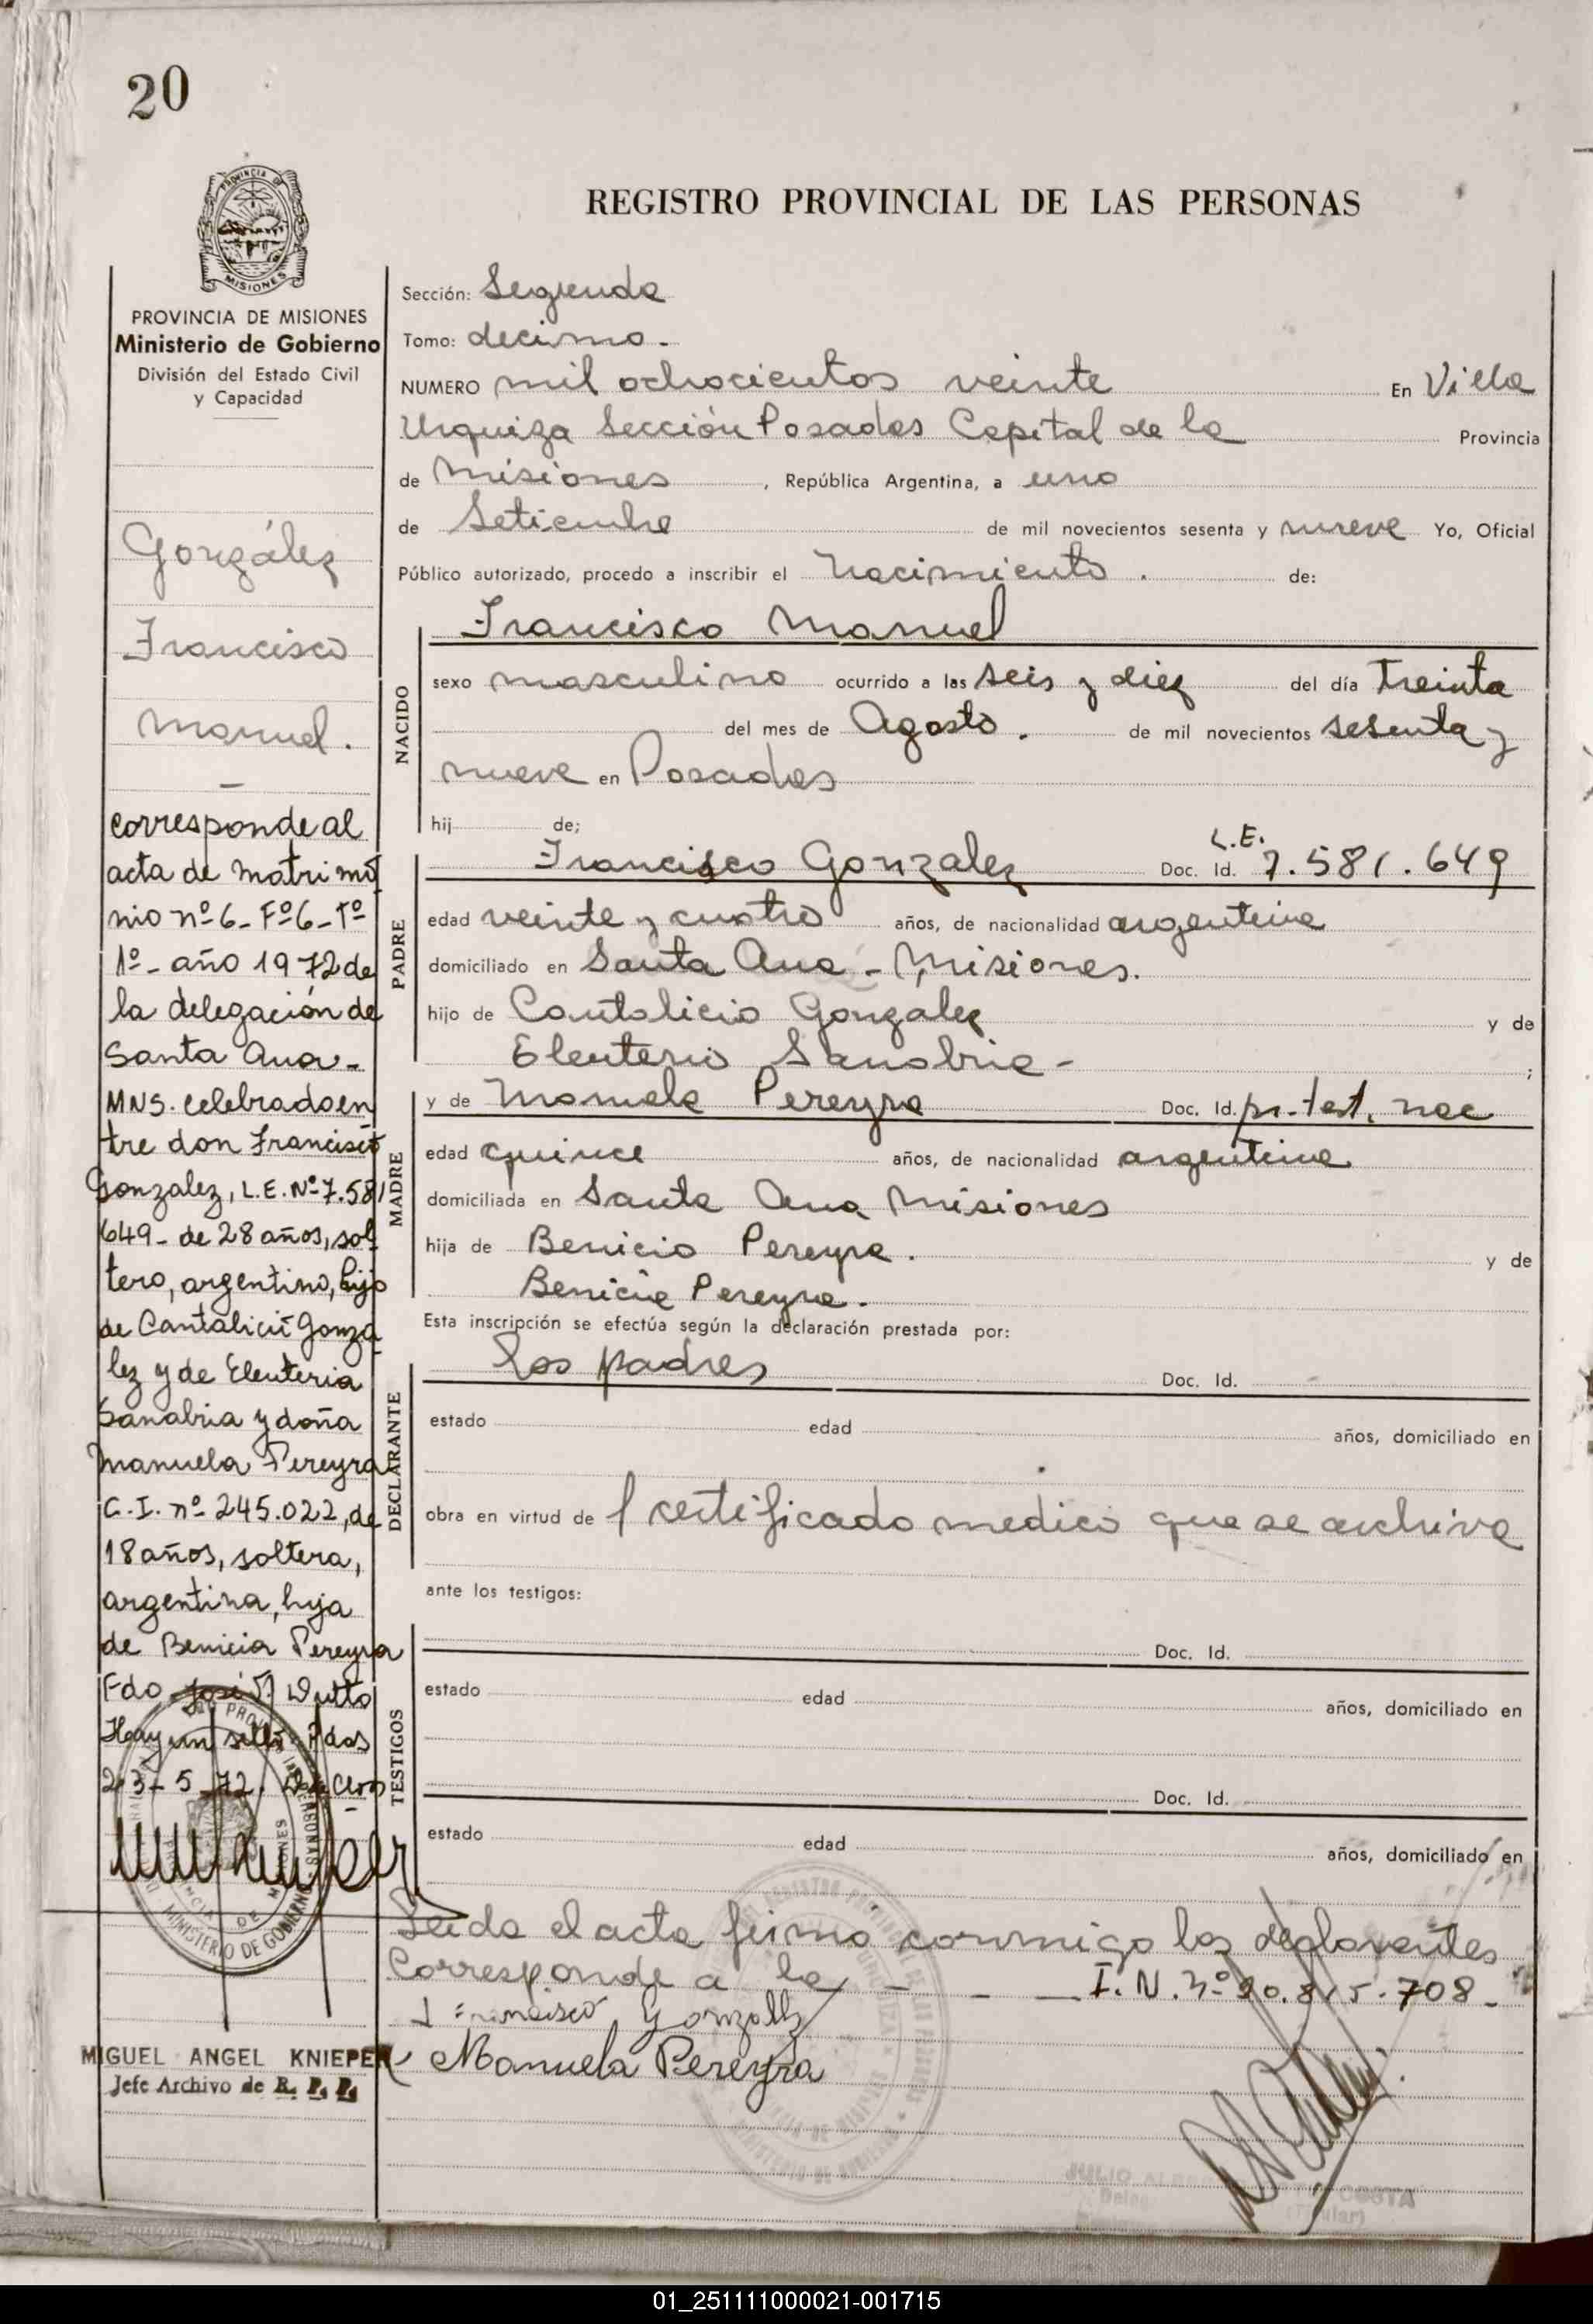 20
PROVINCIA DE
MISIONES
PROVINCIA DE MISIONES
Ministerio de Gobierno
División del Estado Civil
y Capacidad
González
Francisco
Manuel.
corresponde al
acta de matrimo
nio nº 6 - Fº 6 - Tº
1º - año 1972 de
la delegación de
Santa Ana -
MNS. celebrado en
tre don Francisco
Gonzalez, L.E. Nº 7.581
649 - de 28 años, sol
tero, argentino, hijo
de Cantalicio Gonza
lez y de Eleuteria
Sanabria y doña
Manuela Pereyra
C.I. nº 245.022, de
18 años, soltera,
argentina, hija
de Benicia Pereyra
Fdo José Dutto
Hay un sello Pdas
23-5-72.
MINISTERIO DE GOBIERNO
MIGUEL ANGEL KNIEPER
Jefe Archivo de R. P. P.
REGISTRO PROVINCIAL DE LAS PERSONAS
Sección: Segunda
Tomo: decimo.
NUMERO mil ochocientos veinte En Villa
Urquiza Sección Posadas Capital de la Provincia
de Misiones, República Argentina, a uno
de Setiembre de mil novecientos sesenta y nueve Yo, Oficial
Público autorizado, procedo a inscribir el Nacimiento. de:
Francisco Manuel
NACIDO
sexo masculino ocurrido a las seis y diez del día Treinta
del mes de Agosto. de mil novecientos sesenta y
nueve en Posadas
hij de;
PADRE
Francisco Gonzalez Doc. Id. L.E. 7.581.649
edad veinte y cuatro años, de nacionalidad argentina
domiciliado en Santa Ana - Misiones.
hijo de Cantalicio Gonzalez y de
Eleuteria Sanabria - ;
MADRE
y de Manuela Pereyra Doc. Id. pr. test. nac
edad quince años, de nacionalidad argentina
domiciliada en Santa Ana Misiones
hija de Benicio Pereyra. y de
Benicia Pereyra.
Esta inscripción se efectúa según la declaración prestada por:
DECLARANTE
los padres Doc. Id.
estado edad años, domiciliado en
obra en virtud de 1 certificado medico que se archiva
ante los testigos:
TESTIGOS
Doc. Id.
estado edad años, domiciliado en
Doc. Id.
estado edad años, domiciliado en
Leida el acta firmó conmigo los declarantes
Corresponde a la - - - I.N. nº 20.815.708 -
Francisco Gonzalez
Manuela Pereyra
JULIO COSTA
01_251111000021-001715